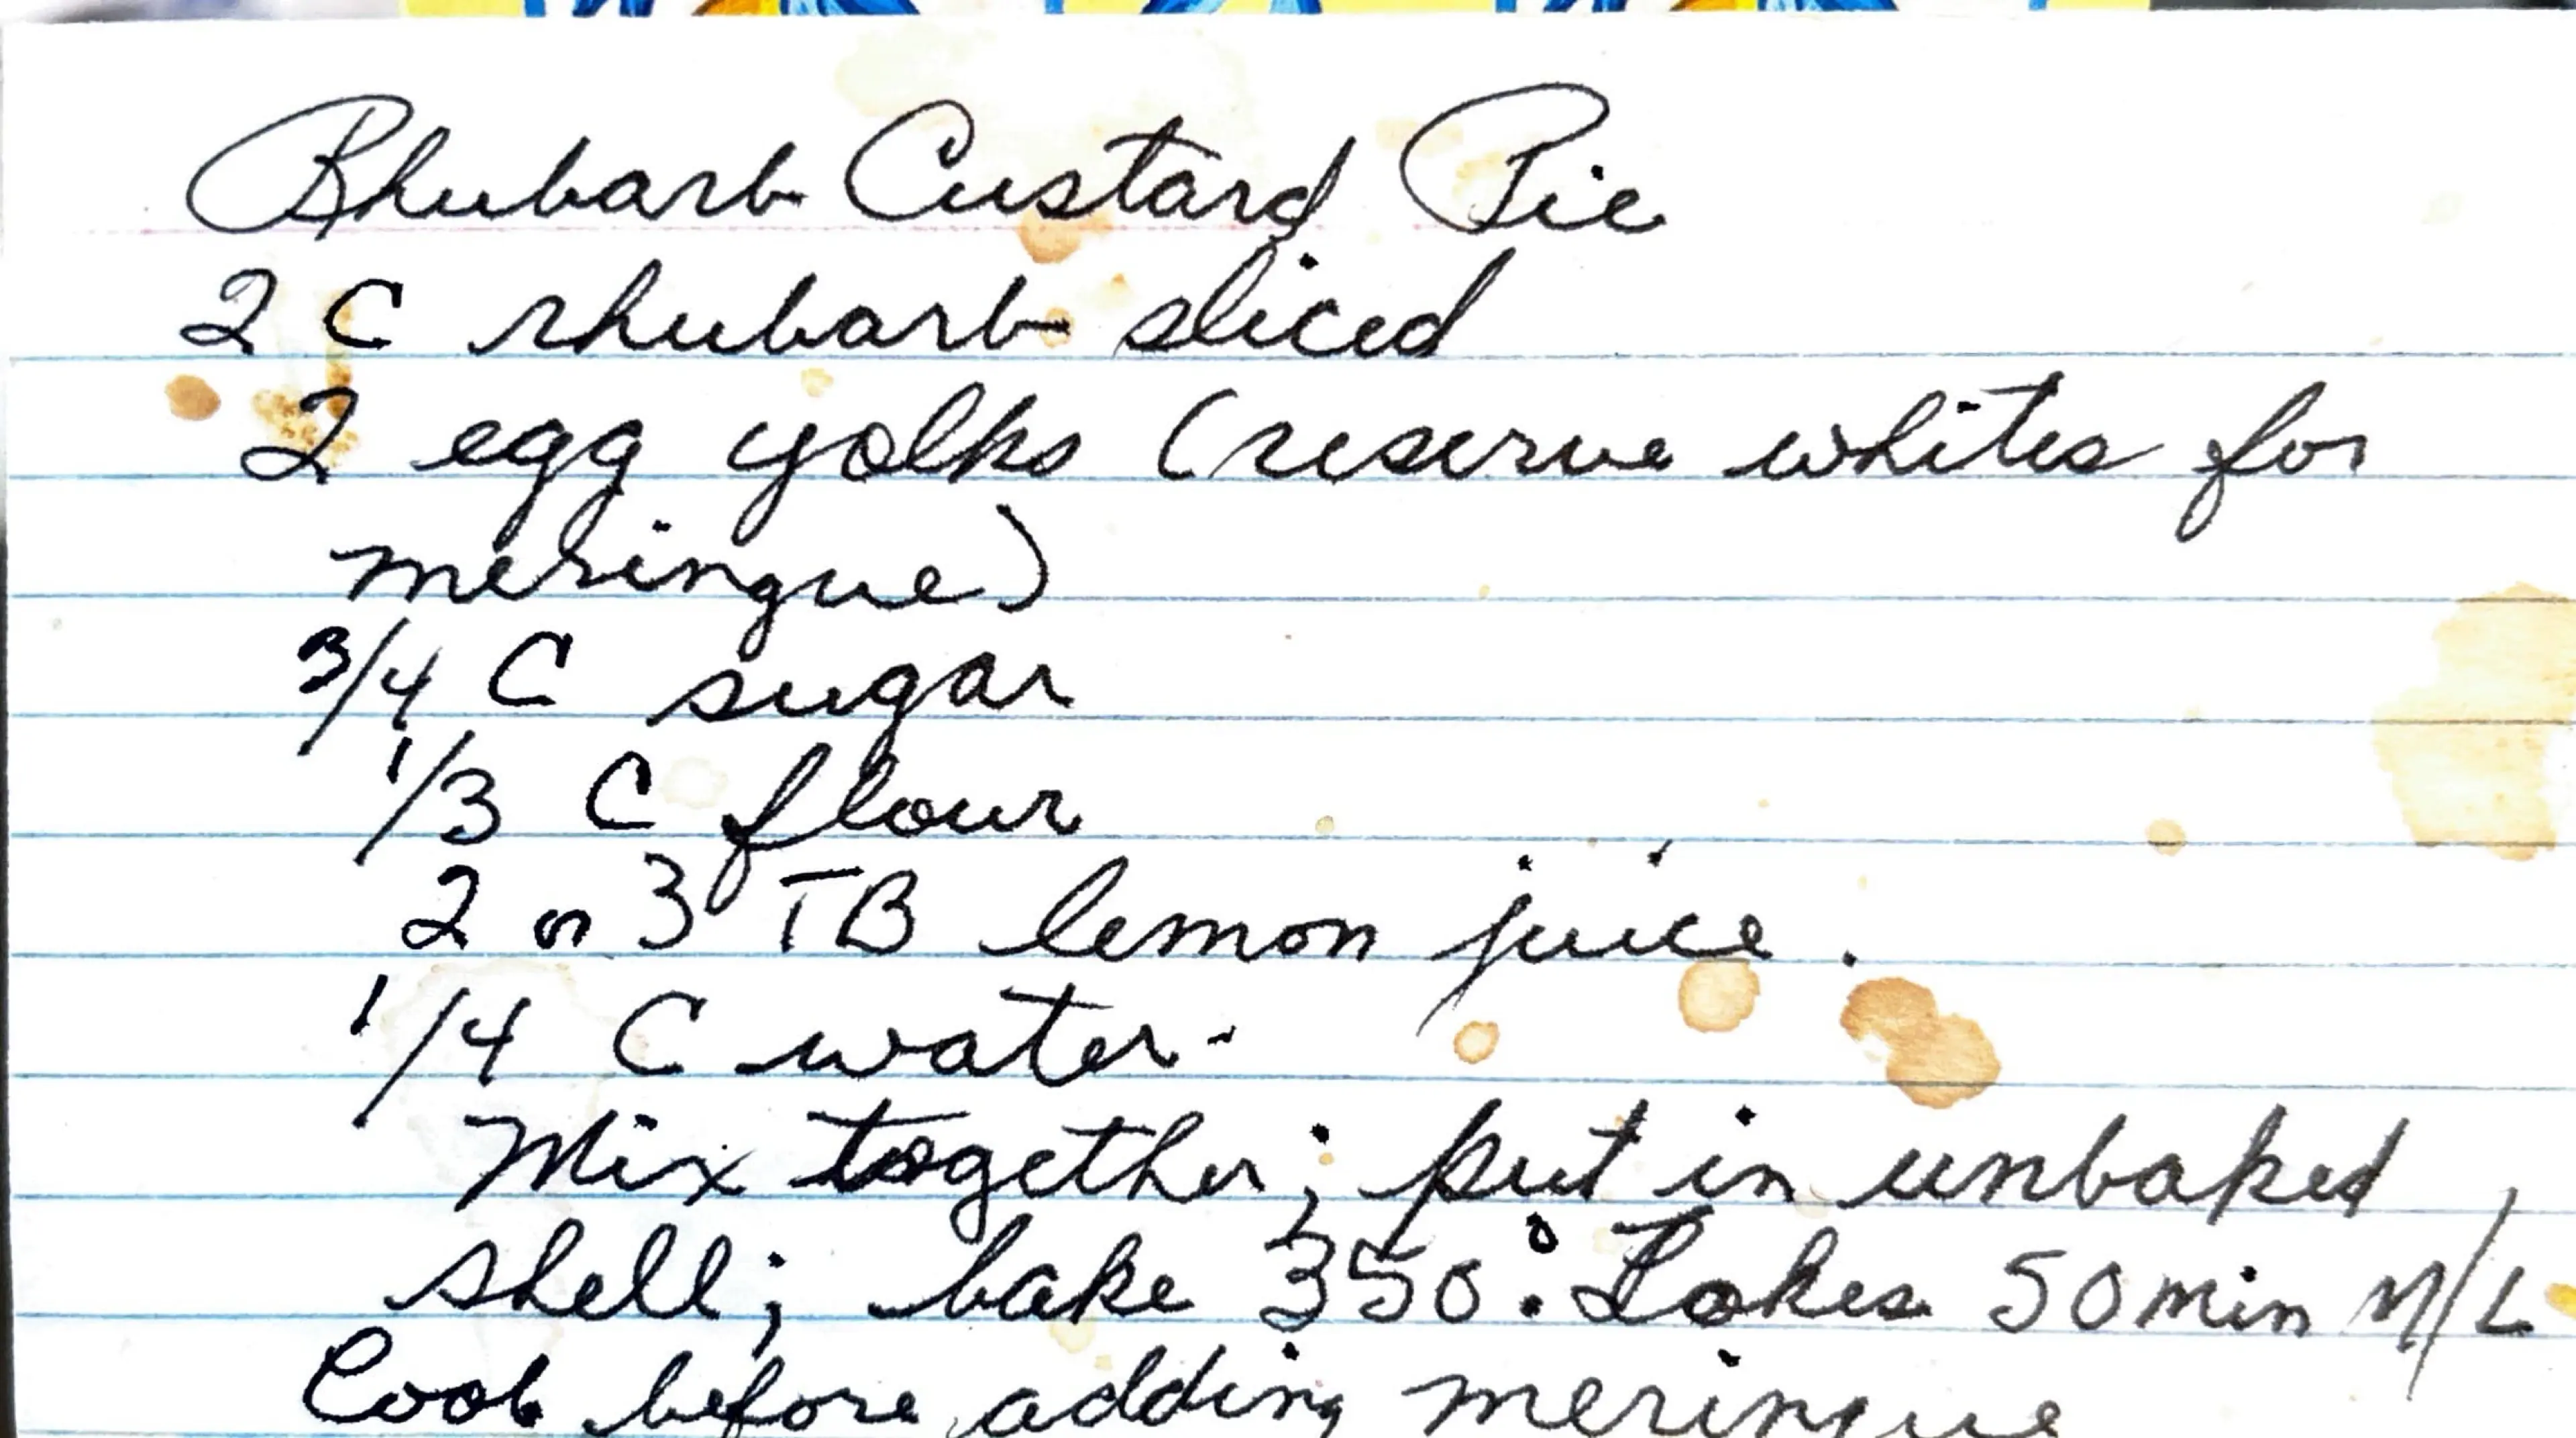 Rhubarb Custard Pie
2 C rhubarb sliced
2 egg yolks (reserve whites for
meringue)
3/4 C sugar
1/3 C flour
2 or 3 TB lemon juice.
1/4 C water.
Mix together; put in unbaked
shell; bake 350°. Takes 50 min M/L
Cool before adding meringue